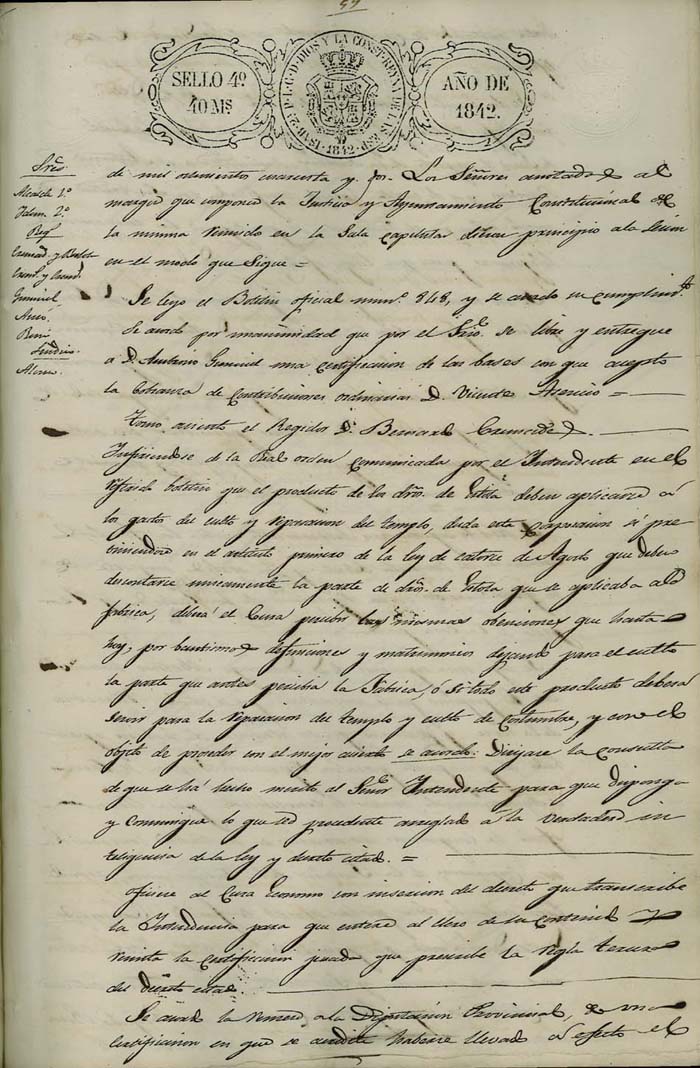 SELLO 4º
40 Ms.
YSAB. 2ª P. L. G. D. DIOS Y LA CONST. REYNA DE LAS ESP. 1842
AÑO DE
1842.
Sres
Alcalde 1.º
Idem 2.º
Reg.s
Giminiel
Síndico
de mil ochocientos cuarenta y Los Señores anotados al
margen que componen la Justicia y Ayuntamiento Constitucional de
la misma reunidos en la Sala capitular dieron principio a la Sesión
en el modo que Sigue =
Se leyo el Boletin oficial num.º 848, y se acordo su cumplim.to
Se acordo por unanimidad que por el Srio. se libre y entregue
a D. Antonio Giminiel una certificacion de las bases con que acepto
la Cobranza de Contribuciones ordinarias D. Vicente Asencio =
Tomo asiento el Regidor D. Bernardo
Infiriendose de la Real orden comunicada por el Intendente en el
referido boletin que el producto de los dros. de Estola deben aplicarse á
los gastos del culto y reparacion del templo, duda esta Corporacion si pre
viniendose en el articulo primero de la ley de catorce de Agosto que deben
descontarse unicamente la parte de dros. de Estola que se aplicaba a la
fabrica, deberá el Cura percibir las mismas obenciones que hasta
hoy, por bautismos defunciones y matrimonios dejando para el culto
la parte que antes percibia la Fabrica, ó Si todo este producto debera
Servir para la reparacion del templo y culto de Costumbre, y con el
objeto de proceder con el mejor acierto se acordo: Dirijase la consulta
de que se há hecho merito al Señor Intendente para que disponga
y comunique lo que sea procedente arreglado a la verdadera in
teligencia de la ley y decreto citado. =
Oficiese al Cura Economo con insercion del decreto que transcribe
la Intendencia para que entere al Clero de su contenido y
remita la certificacion jurada que prescribe la regla tercera
del decreto citado.
Se acordo la remesa a la Diputacion Provincial, de una
certificacion en que se acredite haberse llevado a efecto el